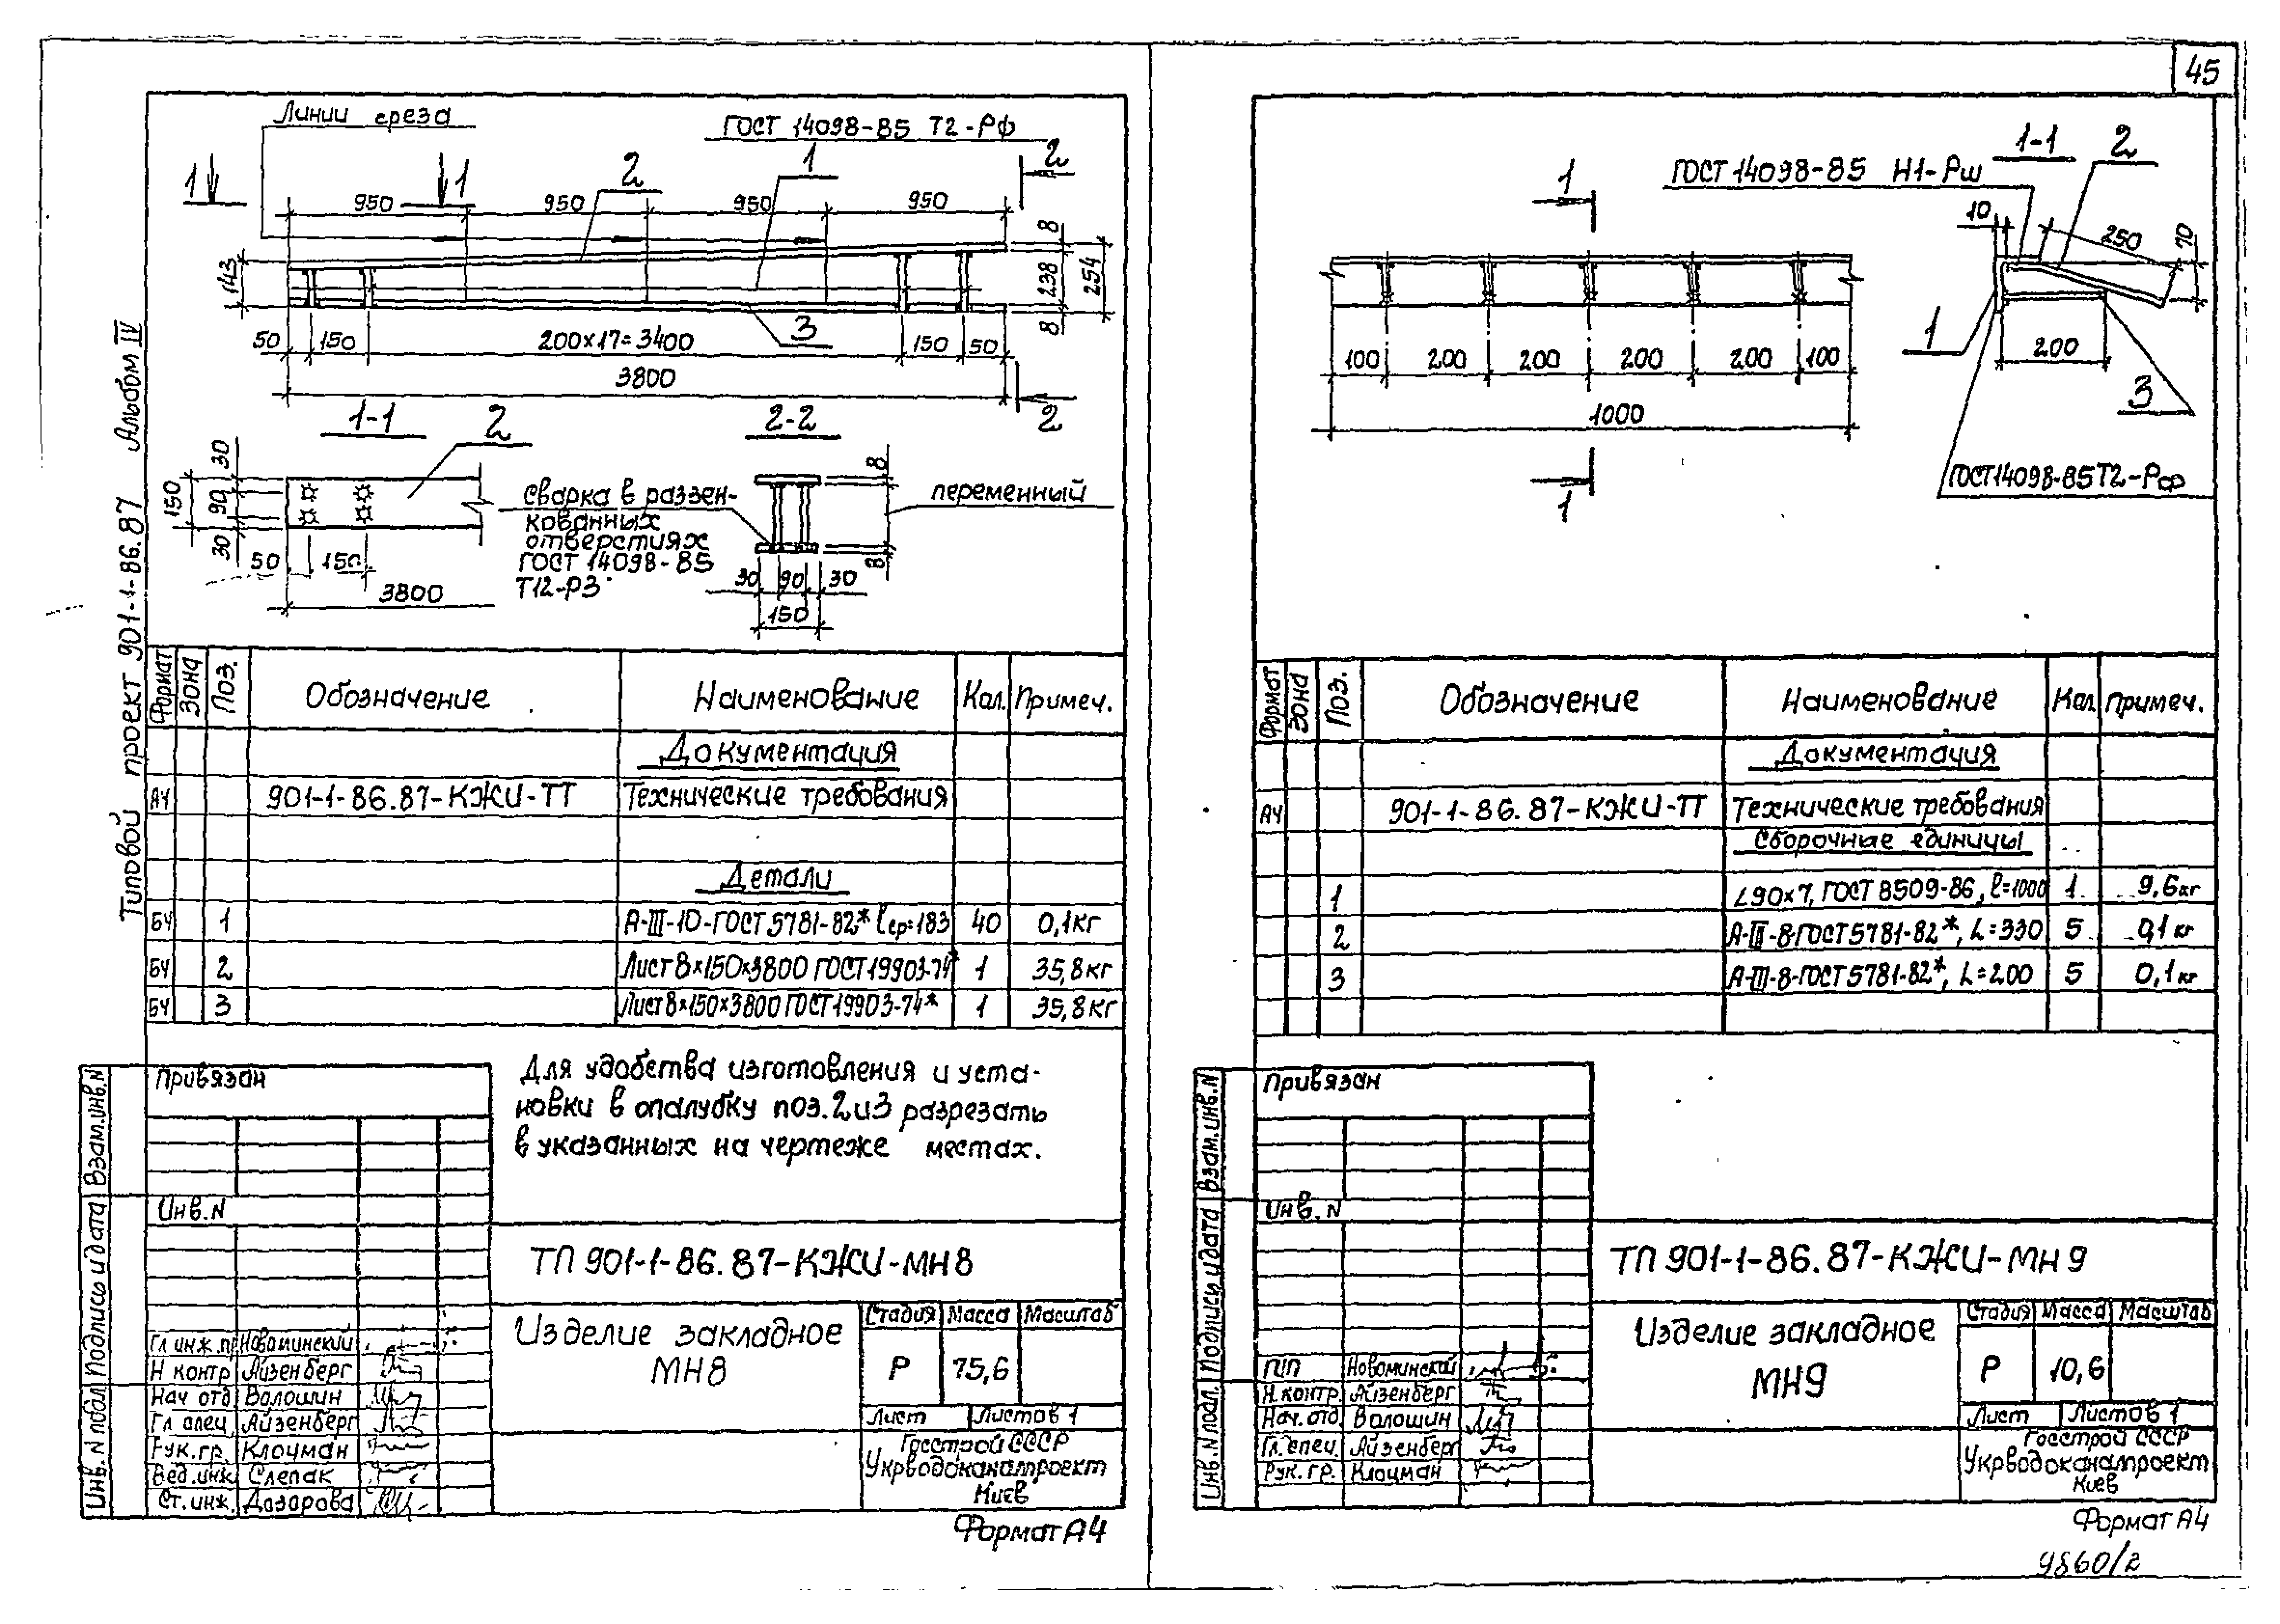 45
Типовой проект 901-1-86.87 Альбом IV
Линии среза
ГОСТ 14098-85 Т2-Рф
1
1
2
1
2
950
950
950
950
8
143
238
254
8
50
150
200x17=3400
3
150
50
3800
2
1-1
2
2-2
30
150
90
30
50
150
3800
сварка в раззен-
кованных
отверстиях
ГОСТ 14098-85
Т12-РЗ
8
переменный
8
30
90
30
150
Формат
Зона
Поз.
Обозначение
Наименование
Кол.
Примеч.
Документация
А4 901-1-86.87-КЖИ-ТТ Технические требования
Детали
БЧ 1 А-III-10-ГОСТ 5781-82* lср=183 40 0,1кг
БЧ 2 Лист 8×150×3800 ГОСТ 19903-74* 1 35,8кг
БЧ 3 Лист 8×150×3800 ГОСТ 19903-74* 1 35,8кг
Для удобства изготовления и уста-
новки в опалубку поз.2и3 разрезать
в указанных на чертеже местах.
Привязан
Инв.N
Взам.инв.N
Подпись и дата
Инв.N подл.
ТП 901-1-86.87-КЖИ-МН8
Изделие закладное
МН8
Стадия Масса Масштаб
Р 75,6
Лист Листов 1
Госстрой СССР
Укрводоканалпроект
Киев
Гл инж.пр Новоминский
Н контр Айзенберг
Нач отд Волошин
Гл спец Айзенберг
Рук.гр. Клоцман
Вед.инж Слепак
Ст.инж. Дазарова
Формат А4
1
ГОСТ 14098-85 Н1-Рш
1-1
2
10
250
70
1
200
3
100
200
200
200
200
100
1000
1
ГОСТ 14098-85 Т2-Рф
Формат
Зона
Поз.
Обозначение
Наименование
Кол.
Примеч.
Документация
А4 901-1-86.87-КЖИ-ТТ Технические требования
Сборочные единицы
1 ∠90×7, ГОСТ 8509-86, l=1000 1 9,6кг
2 А-III-8-ГОСТ 5781-82*, L=330 5 0,1кг
3 А-III-8-ГОСТ 5781-82*, L=200 5 0,1кг
Привязан
Инв.N
Взам.инв.N
Подпись и дата
Инв.N подл.
ТП 901-1-86.87-КЖИ-МН9
Изделие закладное
МН9
Стадия Масса Масштаб
Р 10,6
Лист Листов 1
Госстрой СССР
Укрводоканалпроект
Киев
ГИП Новоминский
Н.контр. Айзенберг
Нач.отд. Волошин
Гл.спец. Айзенберг
Рук.гр. Клоцман
Формат А4
9860/2